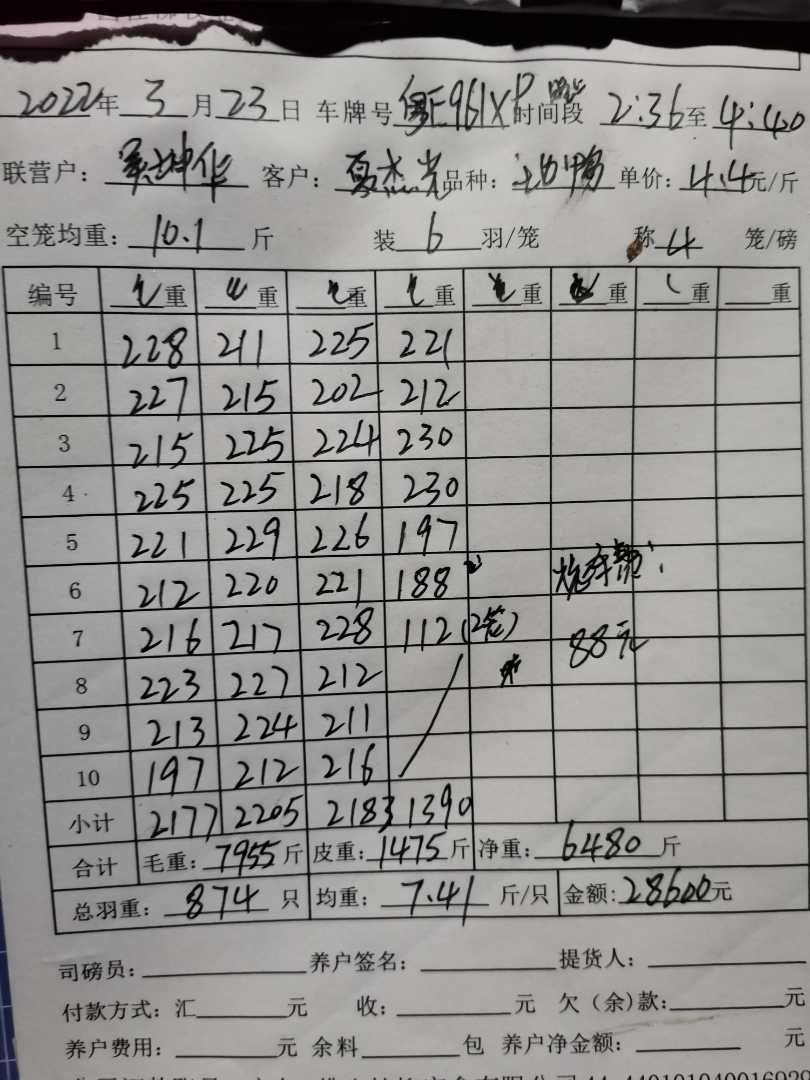 2022年 3 月 23 日 车牌号 粤E961XP 时间段 2:36 至 4:40
联营户： 坤华 客户： 夏杰光 品种： 土鸭 单价： 4.4 元/斤
空笼均重： 10.1 斤 装 6 羽/笼 称 4 笼/磅
编号 毛重 重 毛重 毛重 重 重 重 重
1 228 211 225 221
2 227 215 202 212
3 215 225 224 230
4 225 225 218 230
5 221 229 226 197
6 212 220 221 188
7 216 217 228 112 (2笼) 88元
8 223 227 212
9 213 224 211
10 197 212 216
小计 2177 2205 2183 1390
合计 毛重： 7955 斤 皮重： 1475 斤 净重： 6480 斤
总羽重： 874 只 均重： 7.41 斤/只 金额: 28600 元
司磅员： 养户签名： 提货人：
付款方式：汇 元 收： 元 欠（余)款： 元
养户费用： 元 余料 包 养户净金额： 元